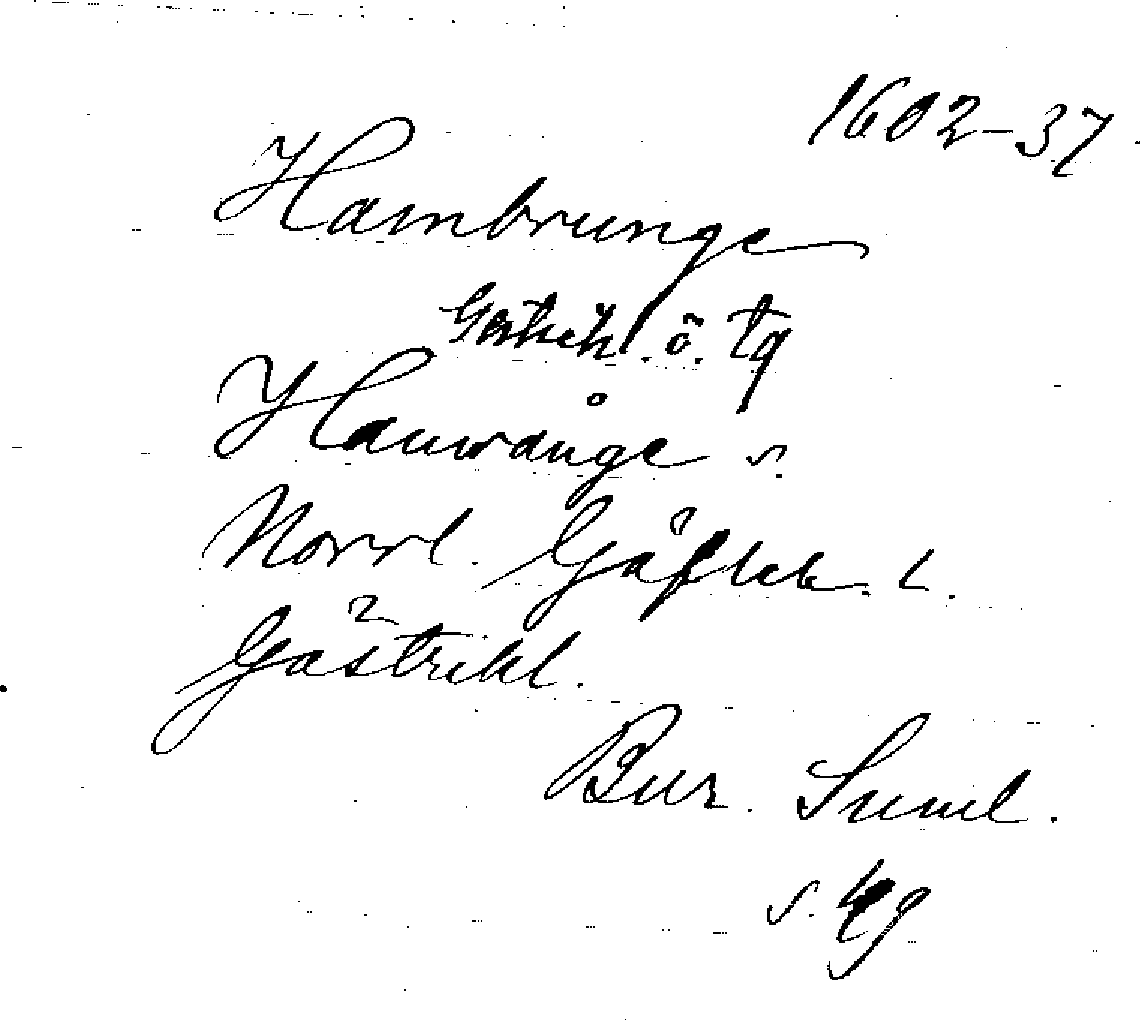 1602-37
Hambrunge
Gästrik. ö. tg
Hauwånge s.
Norrl. Gäfleb. l.
Gästrikl.
Bur. Suml.
s.